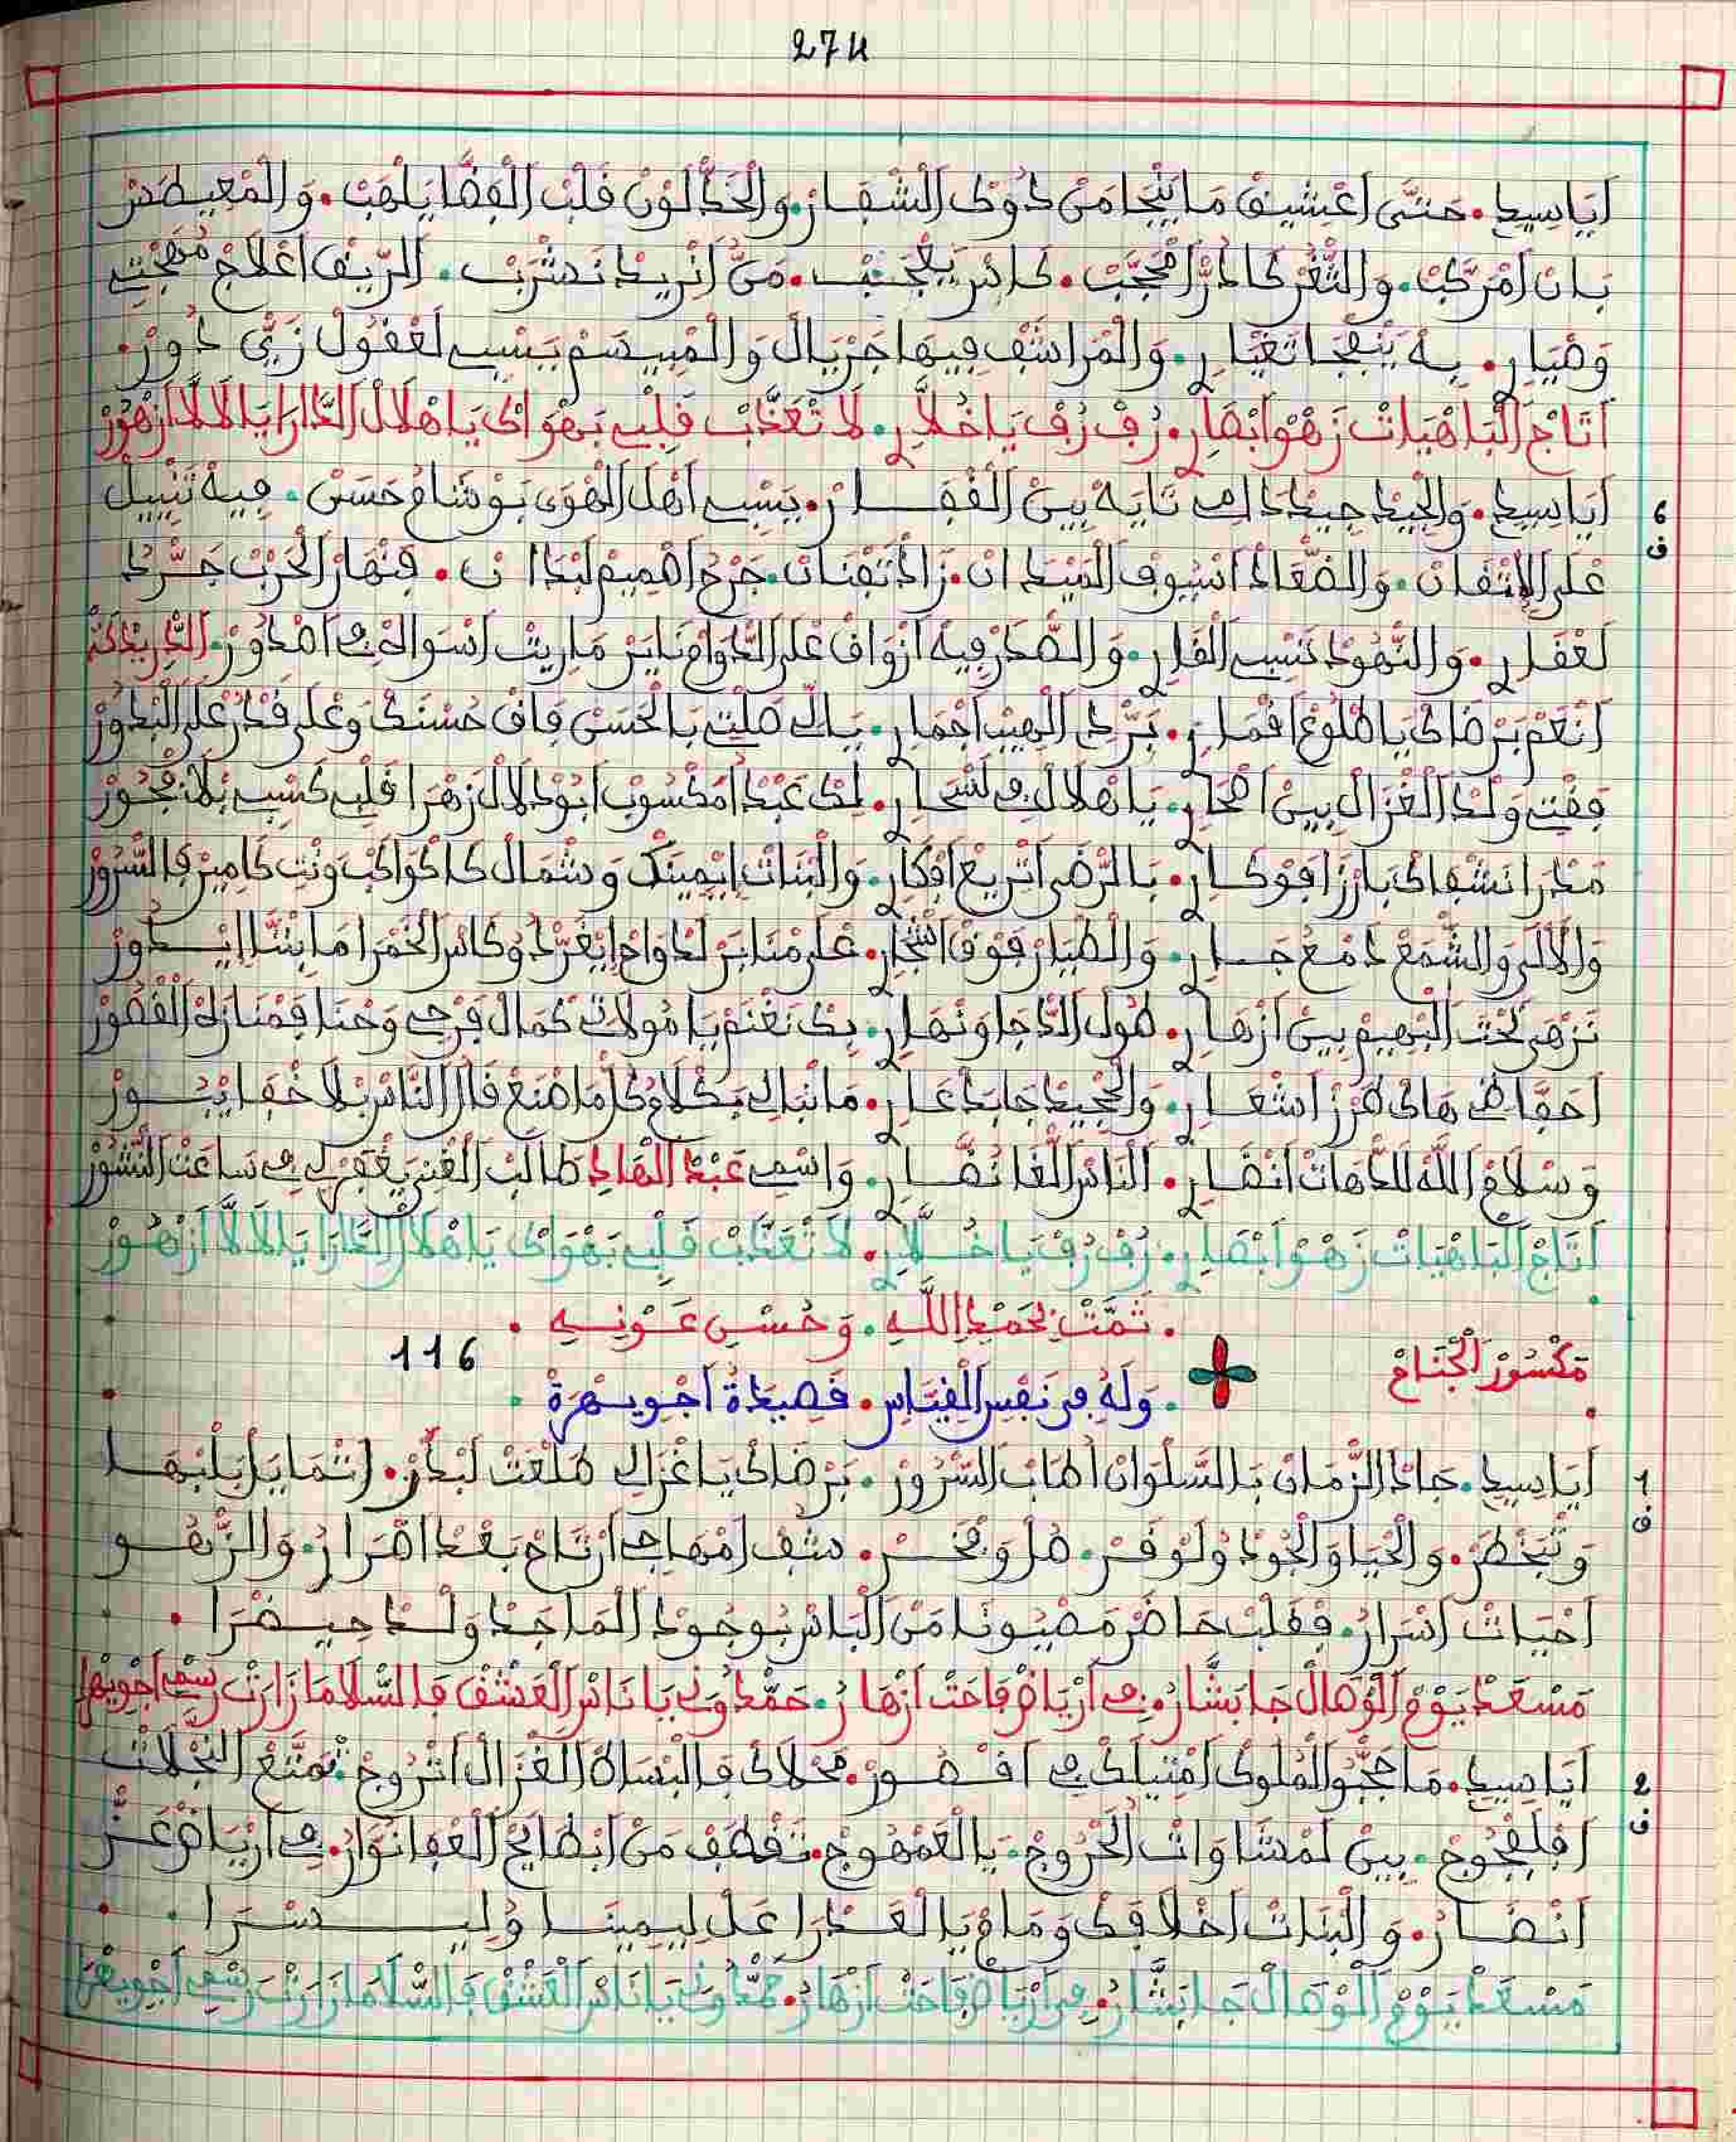 274
أَيَا سِيدِ. حَتَّى اعْشِيقْ مَا يَنْجَا مَنْ دُوكْ الشْفَارْ. وَالْخَدْ لُونْ قَلْبْ الْفْضَا يَلْهَبْ. وَالْمَعْطَسْ
بَانْ امْرَكَّبْ. وَالثَّغْرْ كَا دُرّْ امْحَجَّبْ. كَاسْ يَعْجَبْ. مَنُّ انْرِيدْ نَشْرَبْ. الرِّيقْ اعْلَاجْ مُهَجْتِي
وَضْيَارِ. بِهْ يَنْفْجَا تَغْيَارِ. وَالْمْرَاشَفْ فِيهَا جَرْيَالْ وَالْمَبْسَمْ يَسْبِي لَعْقُولْ زَيّْ دُورْ.
أَتَاجْ الْبَاهْيَاتْ زَهْوْ ابْصَارِ. رُفْ رُفْ يَا خُلَّارِ. لَا تْعَذَّبْ قَلْبِي بَهْوَاكْ يَا هْلَالْ الدَّارَا يَا لَالَّا ازْهُورْ
6
أَيَا سِيدِ. وَالْجِيدْ جِيدْ دَامِي تَايَهْ بِينْ الْقْفَارْ. يَسْبِي أَهْلْ الْهْوَى بَوْشَامُ حَسَنْ. فِيهْ تَنْبِيلْ
ف
عْلَى الِاتْقَانْ. وَالضْعَادْ اسْيُوفْ الْمِيدَانْ. زَادْ تَفْنَانْ. جَرْحْ اهْمِيمْ لَبْدَانْ. فَنْهَارْ الْحَرْبْ جَرّْدْ
لَعْقَلِ. وَالنّْهُودْ تَسْبِي الْقَارِ. وَالصّْدَرْ فِيهْ ازْوَاقْ عْلَى الدّْوَامْ نَايَرْ مَا رِيتْ اسْوَاكْ فِي اصْدُورْ.
انْعَمْ بَرْضَاكْ يَا طْلُوعْ اقْمَارِ. بَرّْدْ الْهِيبْ اجْمَارِ. يَالِّي صَلْتِي بَالْحَسَنْ فَاقْ حُسْنَكْ وَعْلَى قَدْرُ عْلَى الْبْدُورْ
فَقْتِ وَلْدْ الْغْزَالْ بِينْ اصْحَارِ. يَا هْلَالْ فِي لَسْحَارِ. لَكْ عَبْدْ امَكْسُوبْ ابُودْلَالْ زَهْرَا قَلْبِي كَسْبْ بْلَا فْجُورْ
مَدْرَا نَشْفَاكْ بَارْزَا فَوْكَارِ. بَالرّْضَى اتْرِيعْ افْكَارِ. وَالْبْنَاتْ ايْمِينَكْ وَشْمَالْ كَا كْوَاكَبْ وَنْتِ كَامِيرْ فَالسّْرُورْ
وَالْآلَى وَالشّْمَعْ دَمْعْ جَارِ. وَالْطْيَارْ فُوقْ اشْجَارِ. عْلَى مْنَابَرْ لَدْوَاحْ ايْغَرّْدُ وَكَاسْ الْخَمْرَا مَا بِينْنَا ايْدُورْ
نَزْهَى تَحْتْ الْبْهِيمْ بِينْ ازْهَارِ. طُولْ الدّْجَا وَنْهَارِ. بَكْ نَغْنَمْ يَا مُولَاتِي كْمَالْ فَرْجِي وَحْنَا فَمْنَازَهْ الْقْصُورْ
احَفَّاضْ هَاكْ طَرْزْ اشْعَارِ. وَالْجْحِيدْ جَا بَدْعَارِ. مَا نْبَالِي بَكْلَامُ كُلّْ مَا صْنَعْ قَالْ النَّاسْ بْلَا خْفَا يْبُورْ
وَسْلَامْ اللَّهْ لَلدّْهَاتْ انْصَارِ. النَّاسْ الْغَا نَصَّارِ. وَاسْمِي عَبْدْ الْهَادِ طَالَبْ الْغْنِي يَغْفَرْ لِي فِي سَاعَتْ النّْشُورْ
أَتَاجْ الْبَاهْيَاتْ زَهْوْ ابْصَارِ. رُفْ رُفْ يَا خُلَّارِ. لَا تْعَذَّبْ قَلْبِي بَهْوَاكْ يَا هْلَالْ الدَّارَا يَا لَالَّا ازْهُورْ
. تَمَّتْ بِحَمْدِ اللَّهِ. وَحُسْنِ عَوْنِهِ .
مَكْسُورْ الْجْنَاحْ
116
. وَلَهُ مِن نَفْسِ الْقِيَاسِ. قَصِيدَةُ اجْوِيهْرَةْ .
1
أَيَا سِيدِ. جَادْ الزّْمَانْ بَالسَّلْوَانْ اطَابْ السّْرُورْ. بَرْضَاكْ يَا غْزَالِي طَلْعَتْ لَبْدَرْ. اتْمَايَلْ بَلْبْهَا
ف
وَتْبَخْطَرْ. وَالْحْيَا وَالْجُودْ وَلَوْفَرْ. صُلْ وَفْخَرْ. شَفْ امْهَاجِي ارْتَاحْ بَعْدْ اضْرَارُ. وَالزّْهُو
احْيَاتْ اسْرَارُ. فَقَلْبْ حَاضَرْ مَصْيُونَا مَنْ الْبَاسْ بْوُجُودْ الْمَاجَدْ وَلْدْ حِيضْرَا .
مَسْعَدْ يَوْمْ الْوْصَالْ جَا بَشَّارُ. فِي ارْيَاضْ فَاحَتْ ازْهَارُ. حَمّْدُونِي يَا نَاسْ الْعَشْقْ فَالسّْلَامَا زَارَتْ رَسْمِي اجْوِيهْرَا
2
أَيَا سِيدِ. مَا حَجّْبُو الْمْلُوكْ امْتِيلَكْ فِي اقْصُورْ. مَحْلَاكْ فَالْبْسَاطْ الْغْزَالْ اتْرُوجْ. تَمَتَّعْ النّْجْلَاتْ
ف
افْلَفْجُوجْ. بِينْ لَمْشَاوَاتْ الْخْرُوجْ. يَا الْعَمْهُوجْ. تَقْطَفْ مَنْ ابْطَايَحْ الْعْفَا نْوَارُ. فِي ارْيَاضْ عَزّْ
انْصَارُ. وَالْبْنَاتْ اخْلَافَكْ وَمَامْ يَا الْعَدْرَا عَلْ لِيمِينَا وُلِيسْرَا . .
مَسْعَدْ يَوْمْ الْوْصَالْ جَا بَشَّارُ. فِي ارْيَاضْ فَاحَتْ ازْهَارُ. حَمّْدُونِي يَا نَاسْ الْعَشْقْ فَالسّْلَامَا زَارَتْ رَسْمِي اجْوِيهْرَا